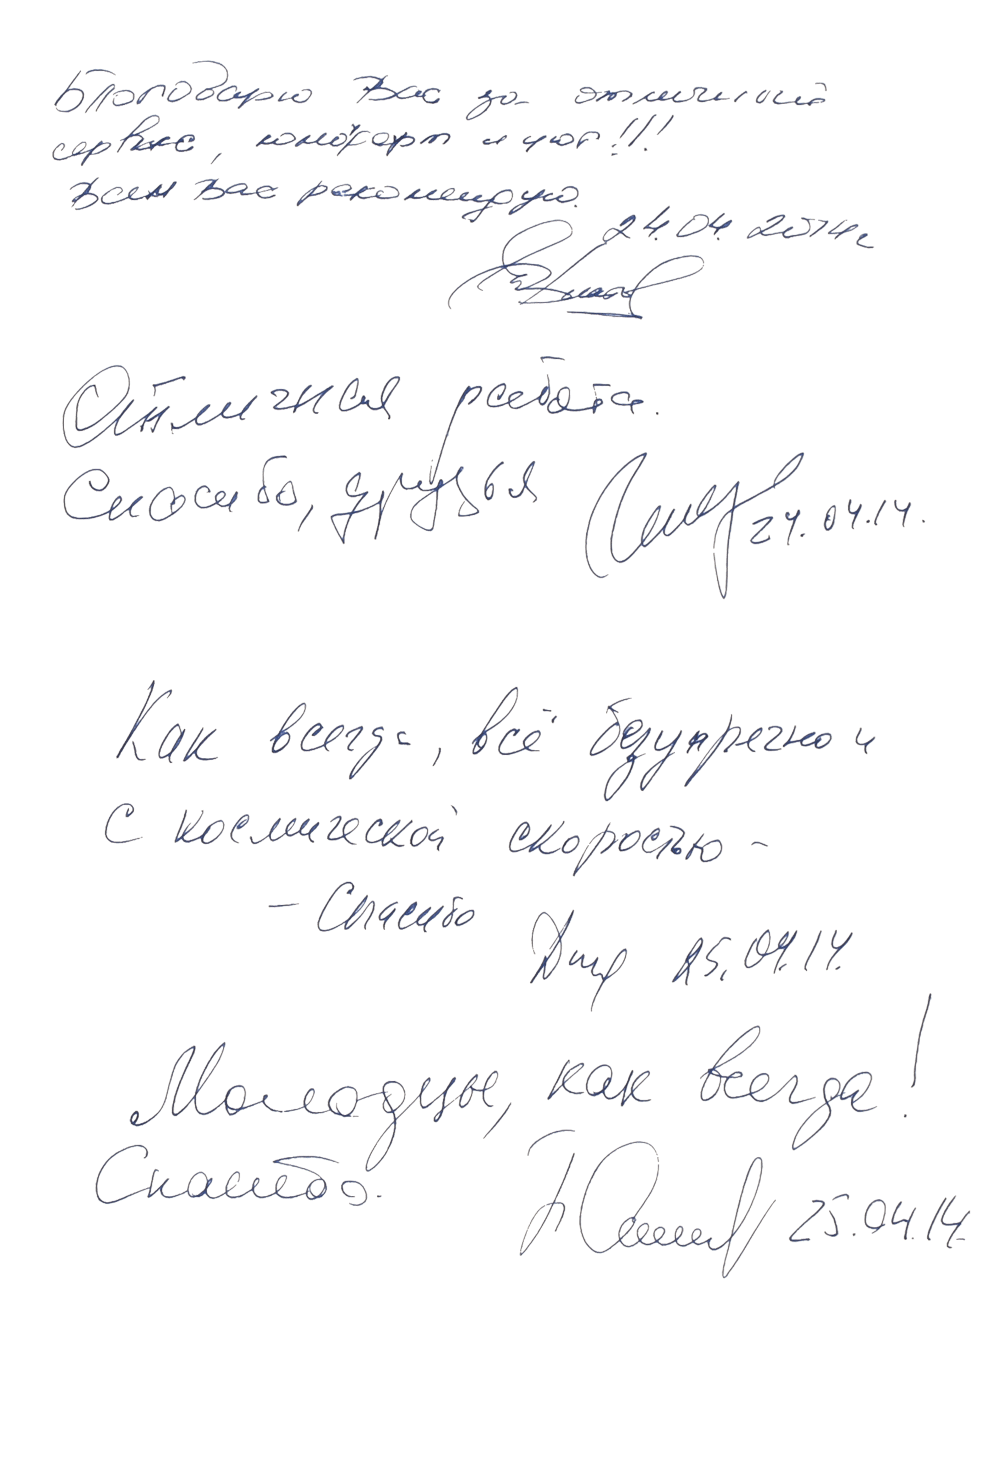 Благодарю Вас за отличный
сервис, комфорт и уют!!!
Всем Вас рекомендую.
24.04.2014г
Отличная работа.
Спасибо, друзья
24.04.14.
Как всегда, всё безупречно и
с космической скоростью -
- Спасибо
25.04.14.
Молодцы, как всегда!
Спасибо.
25.04.14.